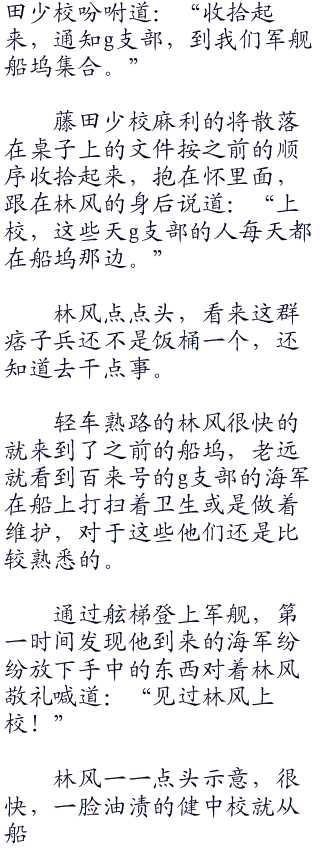 田少校吩咐道：“收拾起
来，通知g支部，到我们军舰
船坞集合。”
藤田少校麻利的将散落
在桌子上的文件按之前的顺
序收拾起来，抱在怀里面，
跟在林风的身后说道：“上
校，这些天g支部的人每天都
在船坞那边。”
林风点点头，看来这群
痞子兵还不是饭桶一个，还
知道去干点事。
轻车熟路的林风很快的
就来到了之前的船坞，老远
就看到百来号的g支部的海军
在船上打扫着卫生或是做着
维护，对于这些他们还是比
较熟悉的。
通过舷梯登上军舰，第
一时间发现他到来的海军纷
纷放下手中的东西对着林风
敬礼喊道：“见过林风上
校！”
林风一一点头示意，很
快，一脸油渍的健中校就从
船